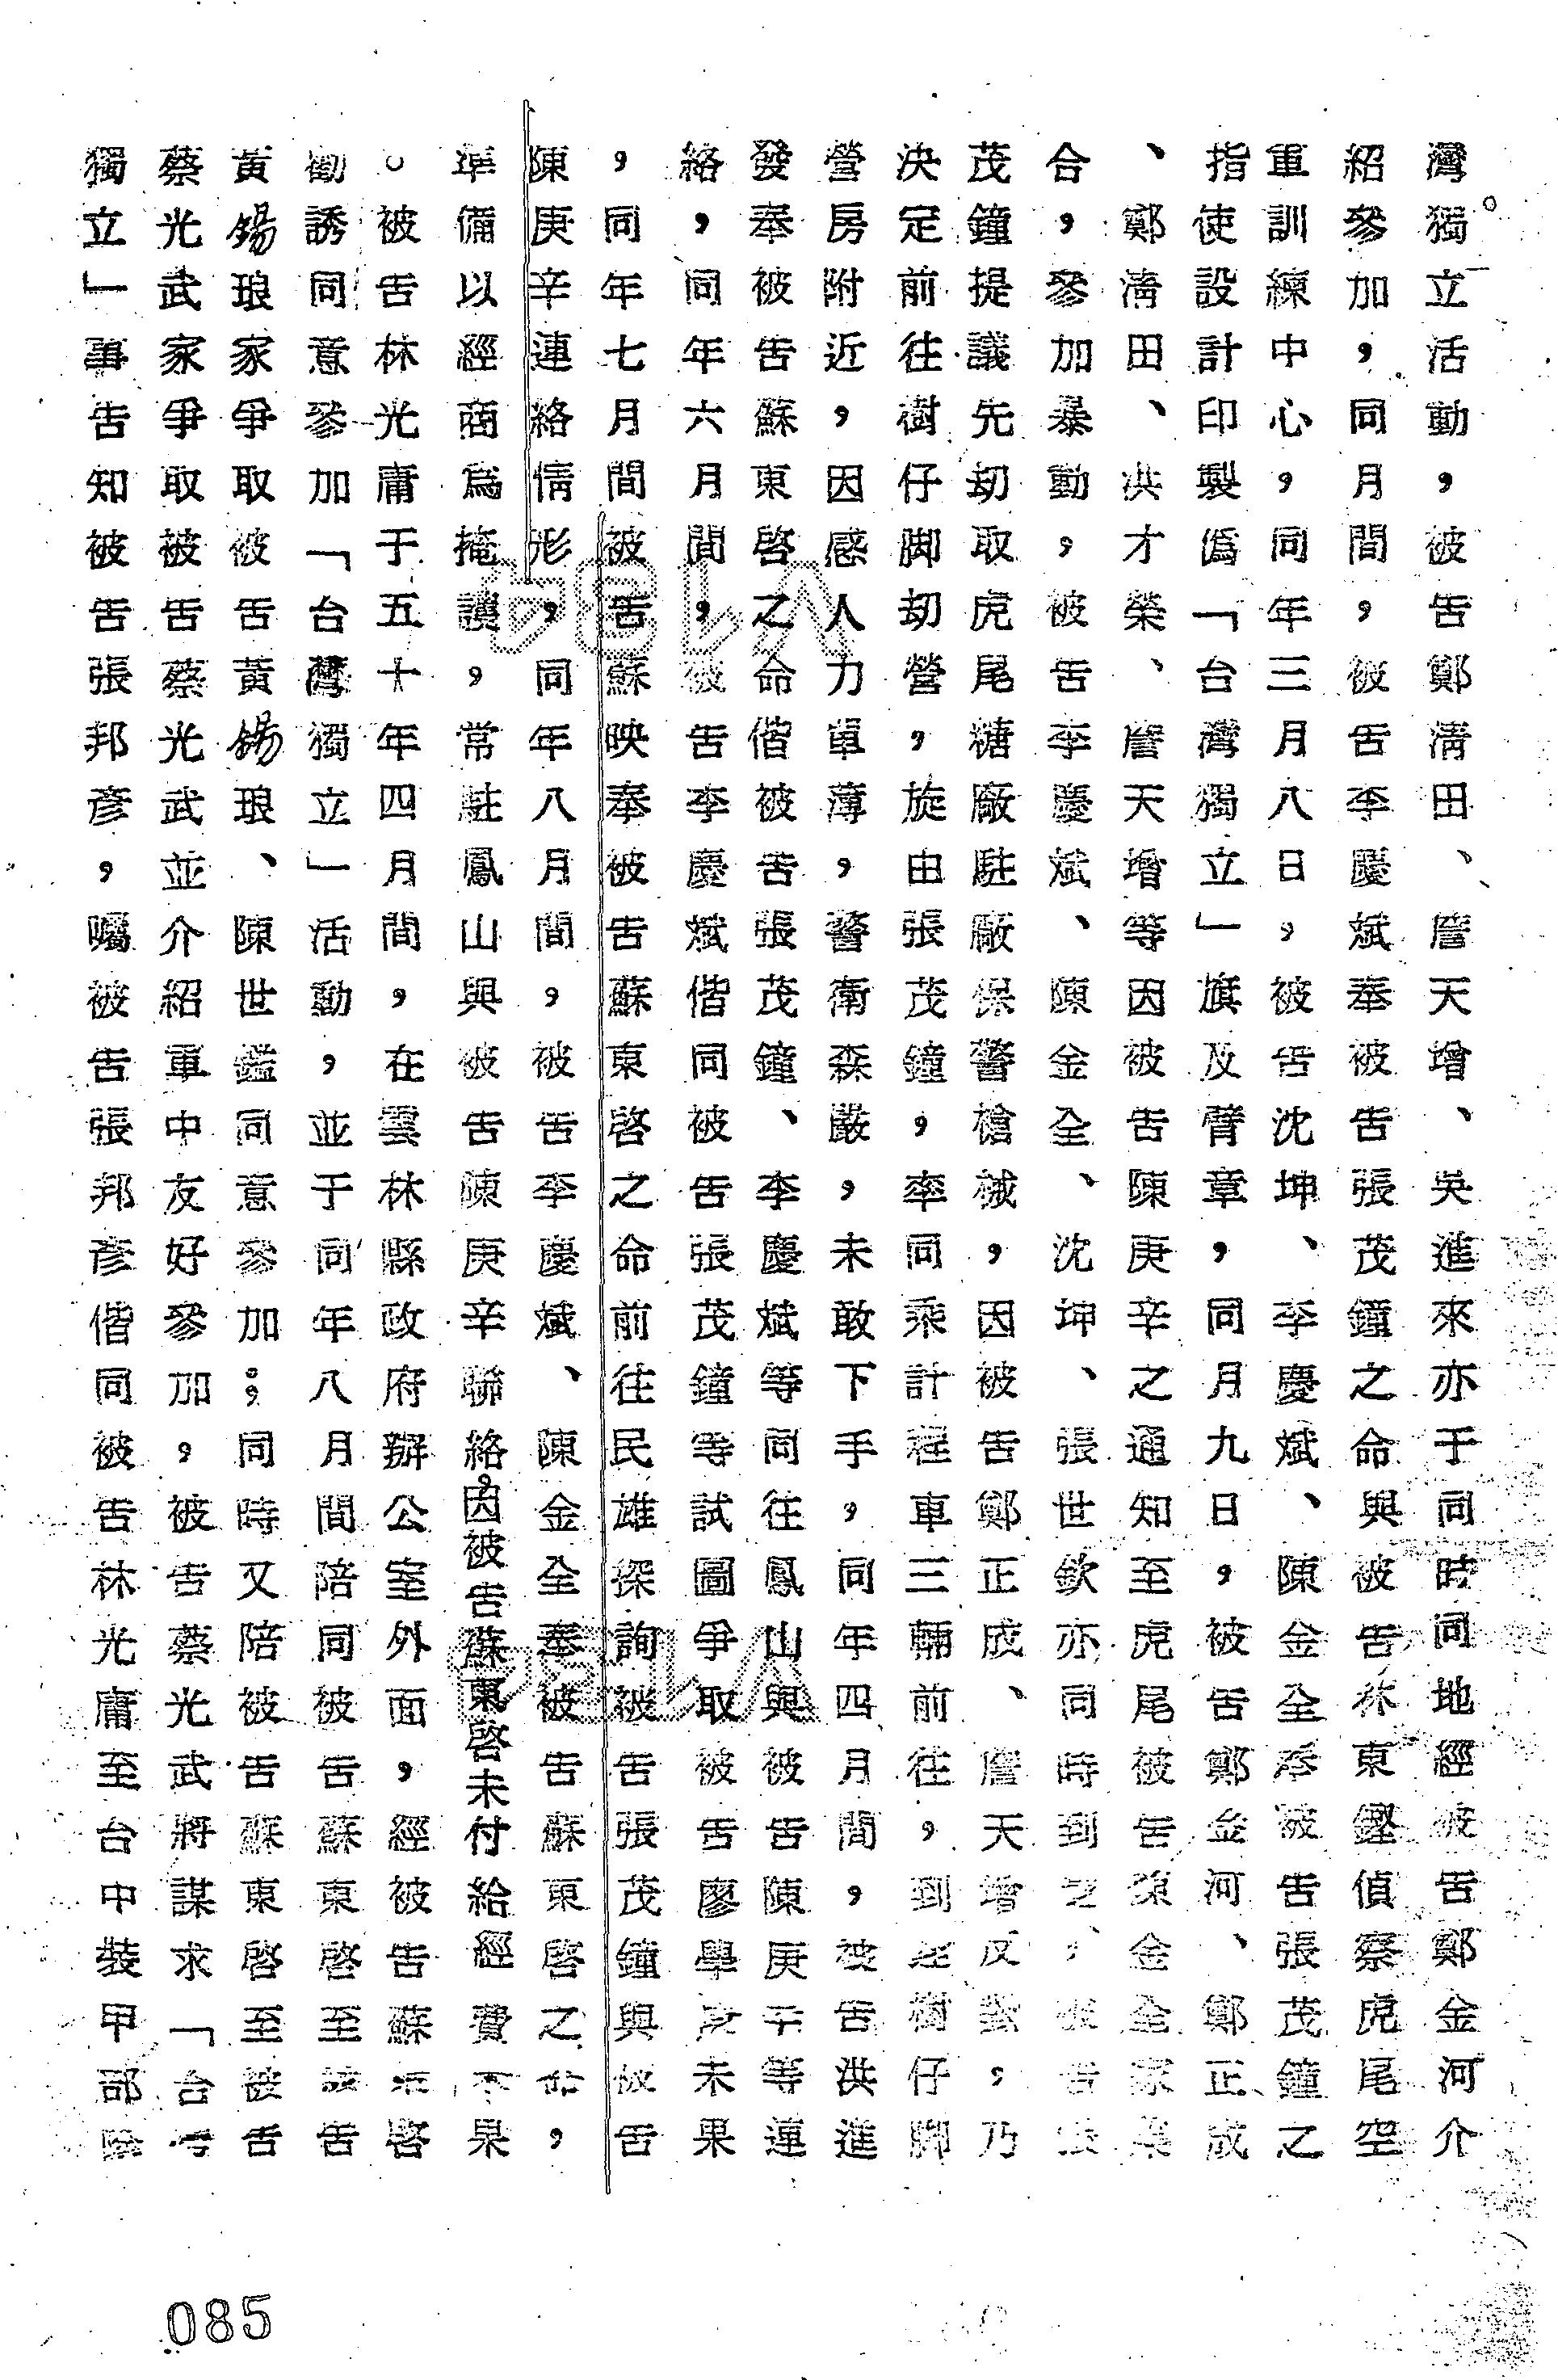 灣獨立活動，被告鄭清田、詹天增、吳進來亦于同時同地經被告鄭金河介
紹參加，同月間，被告李慶斌奉被告張茂鐘之命與被告林東鏗偵察虎尾空
軍訓練中心，同年三月八日，被告沈坤、李慶斌、陳金全奉被告張茂鐘之
指使設計印製偽「台灣獨立」旗及臂章，同月九日，被告鄭金河、鄭正成
、鄭清田、洪才榮、詹天增等因被告陳庚辛之通知至虎尾被告陳金全家集
合，參加暴動，被告李慶斌、陳金全、沈坤、張世欽亦同時到之、被告張
茂鐘提議先刧取虎尾糖廠駐廠保警槍械，因被告鄭正成、詹天增反對，乃
決定前往樹仔脚刧營，旋由張茂鐘，率同乘計程車三輛前往，到達樹仔脚
營房附近，因感人力單薄，警衛森嚴，未敢下手，同年四月間，被告洪進
發奉被告蘇東啓之命偕被告張茂鐘、李慶斌等同往鳳山與被告陳庚辛等連
絡，同年六月間，被告李慶斌偕同被告張茂鐘等試圖爭取被告廖學庚未果
，同年七月間被告蘇映奉被告蘇東啓之命前往民雄探詢被告張茂鐘與被告
陳庚辛連絡情形，同年八月間，被告李慶斌、陳金全奉被告蘇東啓之命，
準備以經商為掩護，常駐鳳山與被告陳庚辛聯絡。因被告蘇東啓未付給經費不果
。被告林光庸于五十年四月間，在雲林縣政府辦公室外面，經被告蘇東啓
勸誘同意參加「台灣獨立」活動，並于同年八月間陪同被告蘇東啓至被告
黃錫琅家爭取被告黃錫琅、陳世鑑同意參加；同時又陪被告蘇東啓至被告
蔡光武家爭取被告蔡光武並介紹軍中友好參加，被告蔡光武將謀求「台灣
獨立」事告知被告張邦彥，囑被告張邦彥偕同被告林光庸至台中裝甲部隊
085